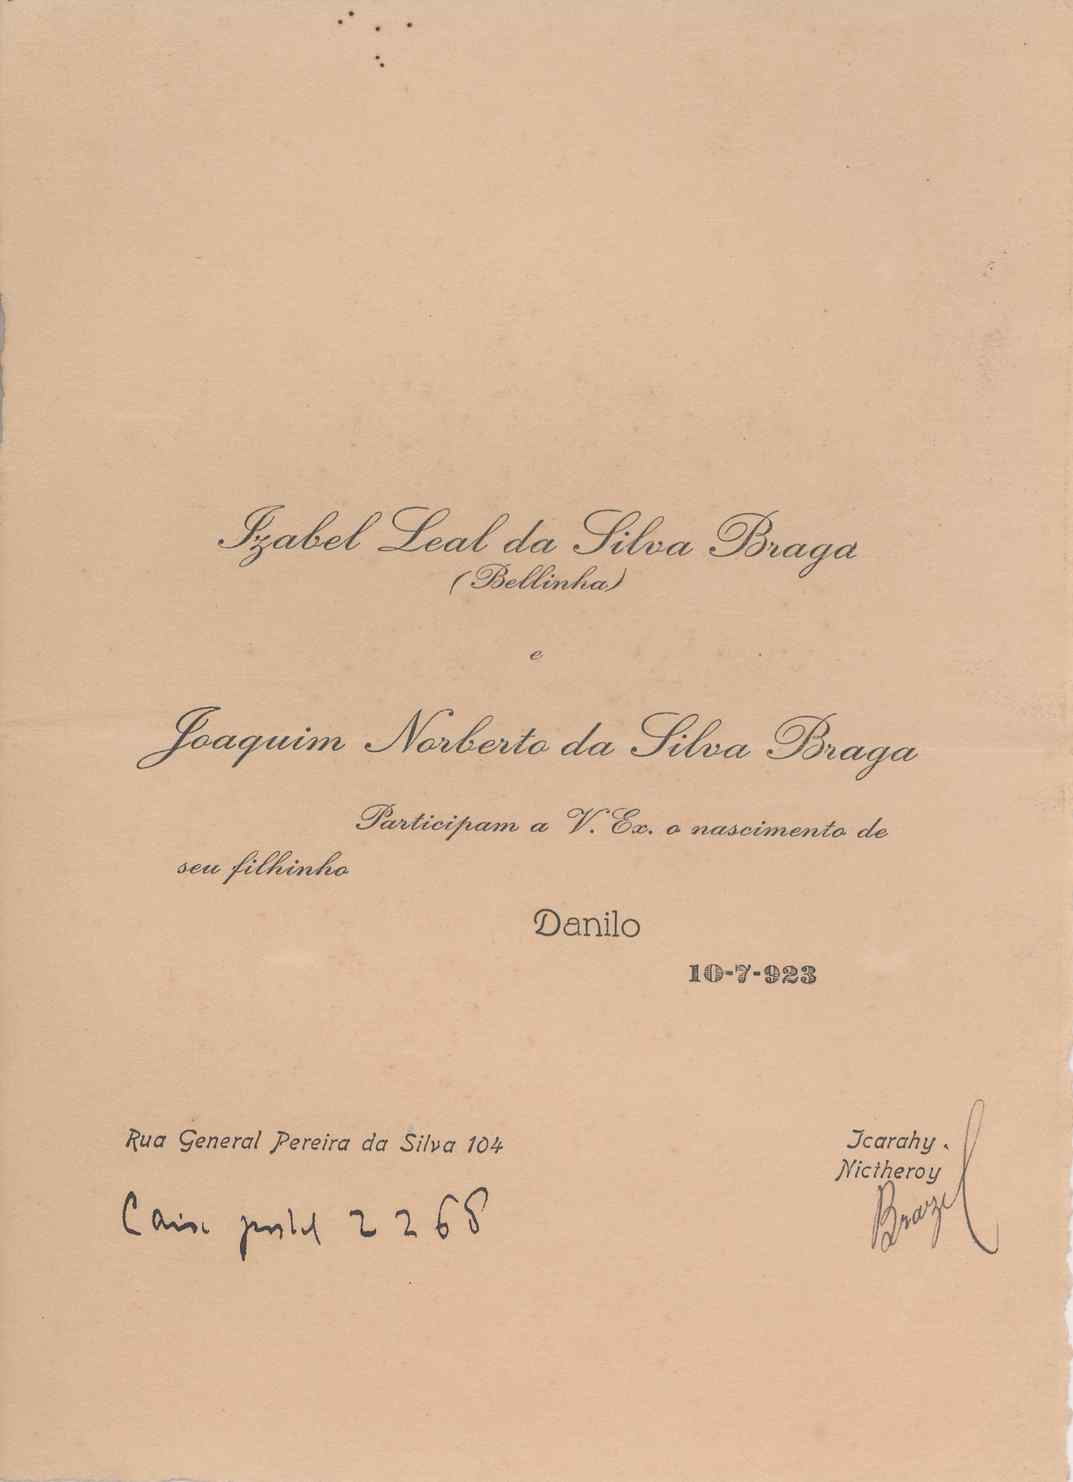 Izabel Leal da Silva Braga
(Bellinha)
e
Joaquim Norberto da Silva Braga
Participam a V. Ex. o nascimento de
seu filhinho
Danilo
10-7-923
Rua General Pereira da Silva 104
Icarahy.
Nictheroy
Brazil
Caixa postal 2268